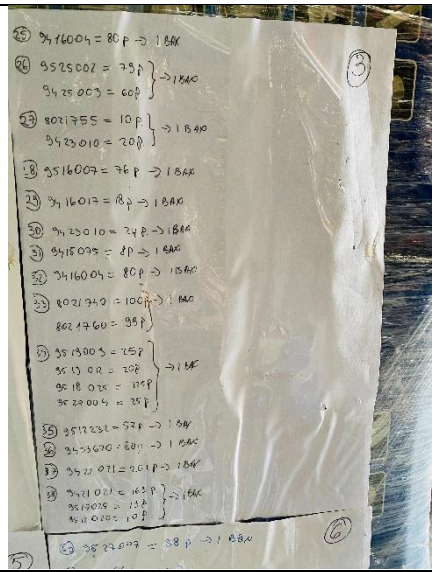 25 9416004 = 80p → 1 BAX
3
26 9525002 = 79p
9425003 = 60p → 1 BAX
27 8021755 = 10p
9423010 = 20p → 1 BAX
28 9516007 = 76p → 1 BAX
29 9416017 = 18p → 1 BAX
30 9423010 = 24p → 1 BAX
31 9415075 = 8p → 1 BAX
32 9416004 = 80p → 1 BAX
33 8021740 = 100p → 1 BAX
8021760 = 99p
34 9519003 = 25p → 1 BAX
9519012 = 20p
9518025 = 125p
9527004 = 25p
35 9512232 = 57p → 1 BAX
36 9433670 = 60p → 1 BAX
37 9421021 = 201p → 1 BAX
38 9421021 = 169p → 1 BAX
9517025 = 19p
= 10p
6
9527007 = 38p → 1 BAX
5